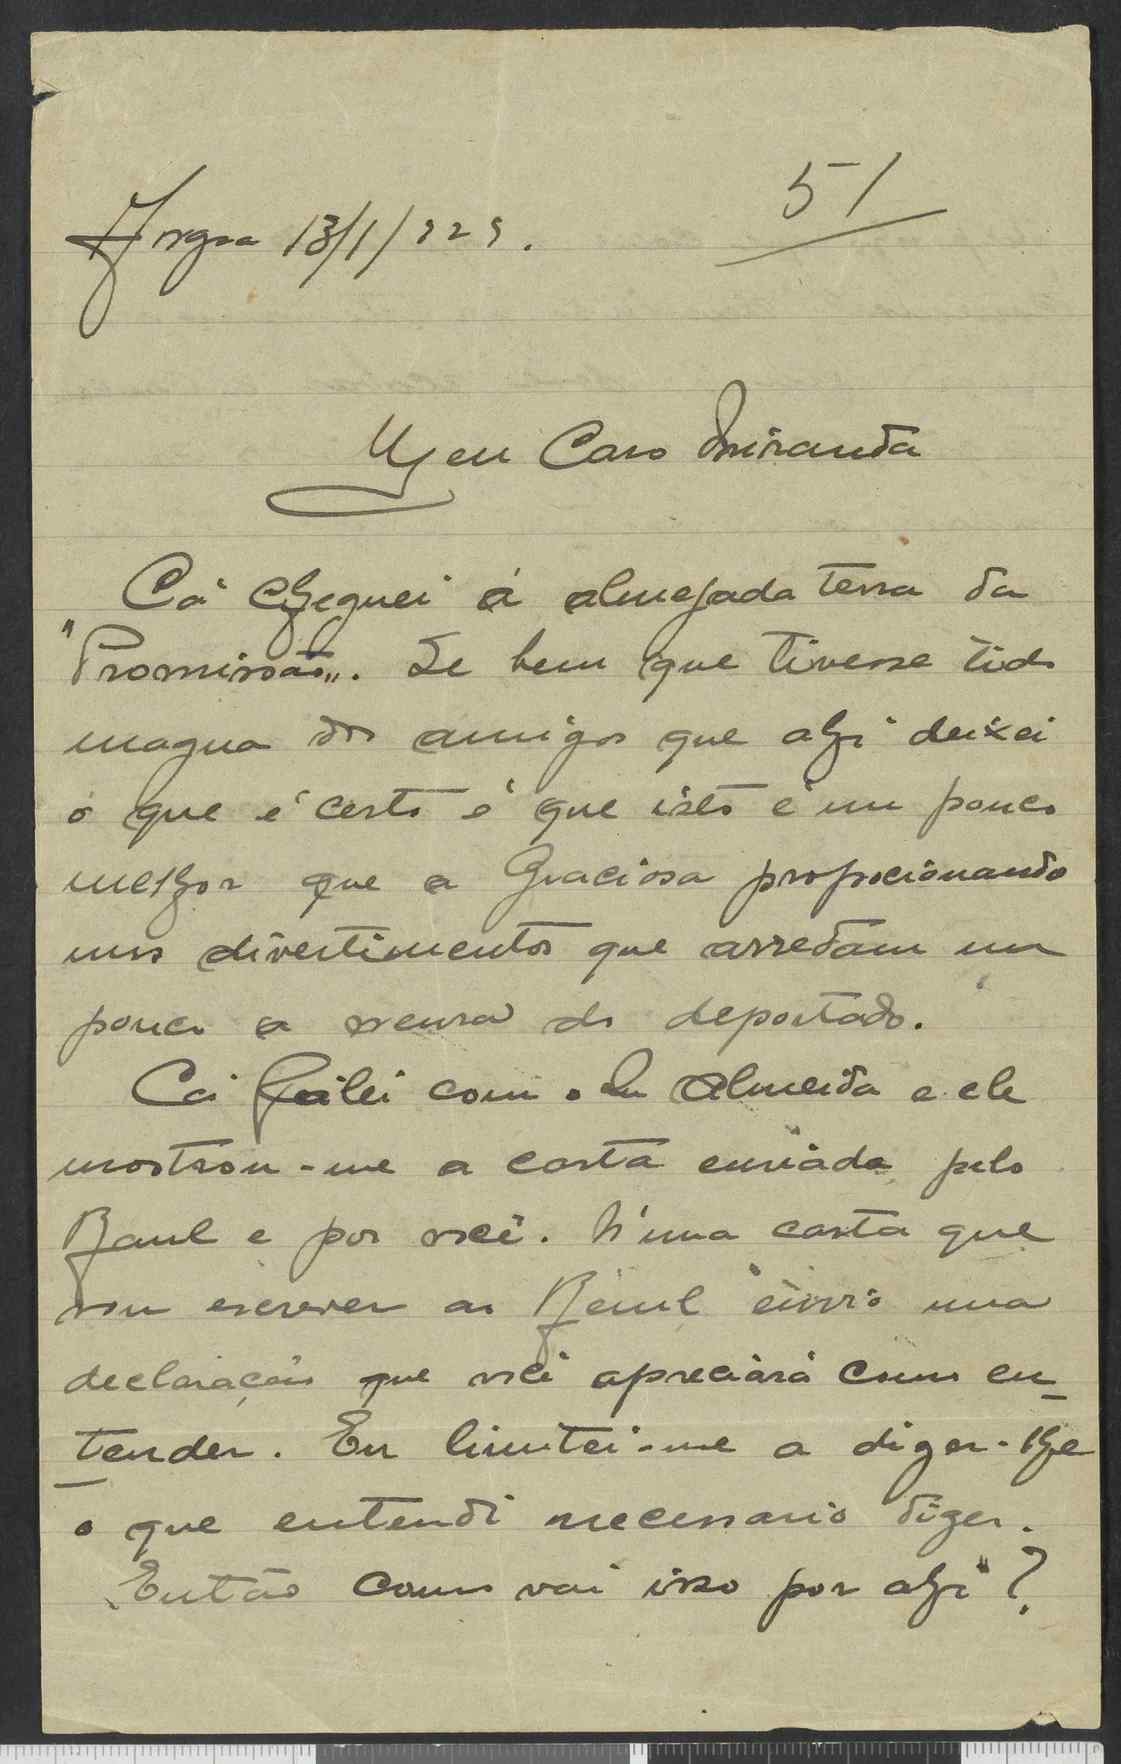 51
Angra 13/1/929.
Meu Caro Miranda
Cá cheguei á almejada terra da
"Promissão„. Se bem que tivesse tido
magua dos amigos que ahi deixei
o que é certo é que isto é um pouco
melhor que a Graciosa proporcionando
uns divertimentos que arredam um
pouco a neura do deportado.
Cá falei com o Almeida e ele
mostrou-me a carta enviada pelo
Raul e por você. N'uma carta que
vou escrever ao Raul envio uma
declaração que você apreciará como en-
tender. Eu limitei-me a dizer-lhe
o que entendi necessario dizer.
Então como vai isso por ahi?